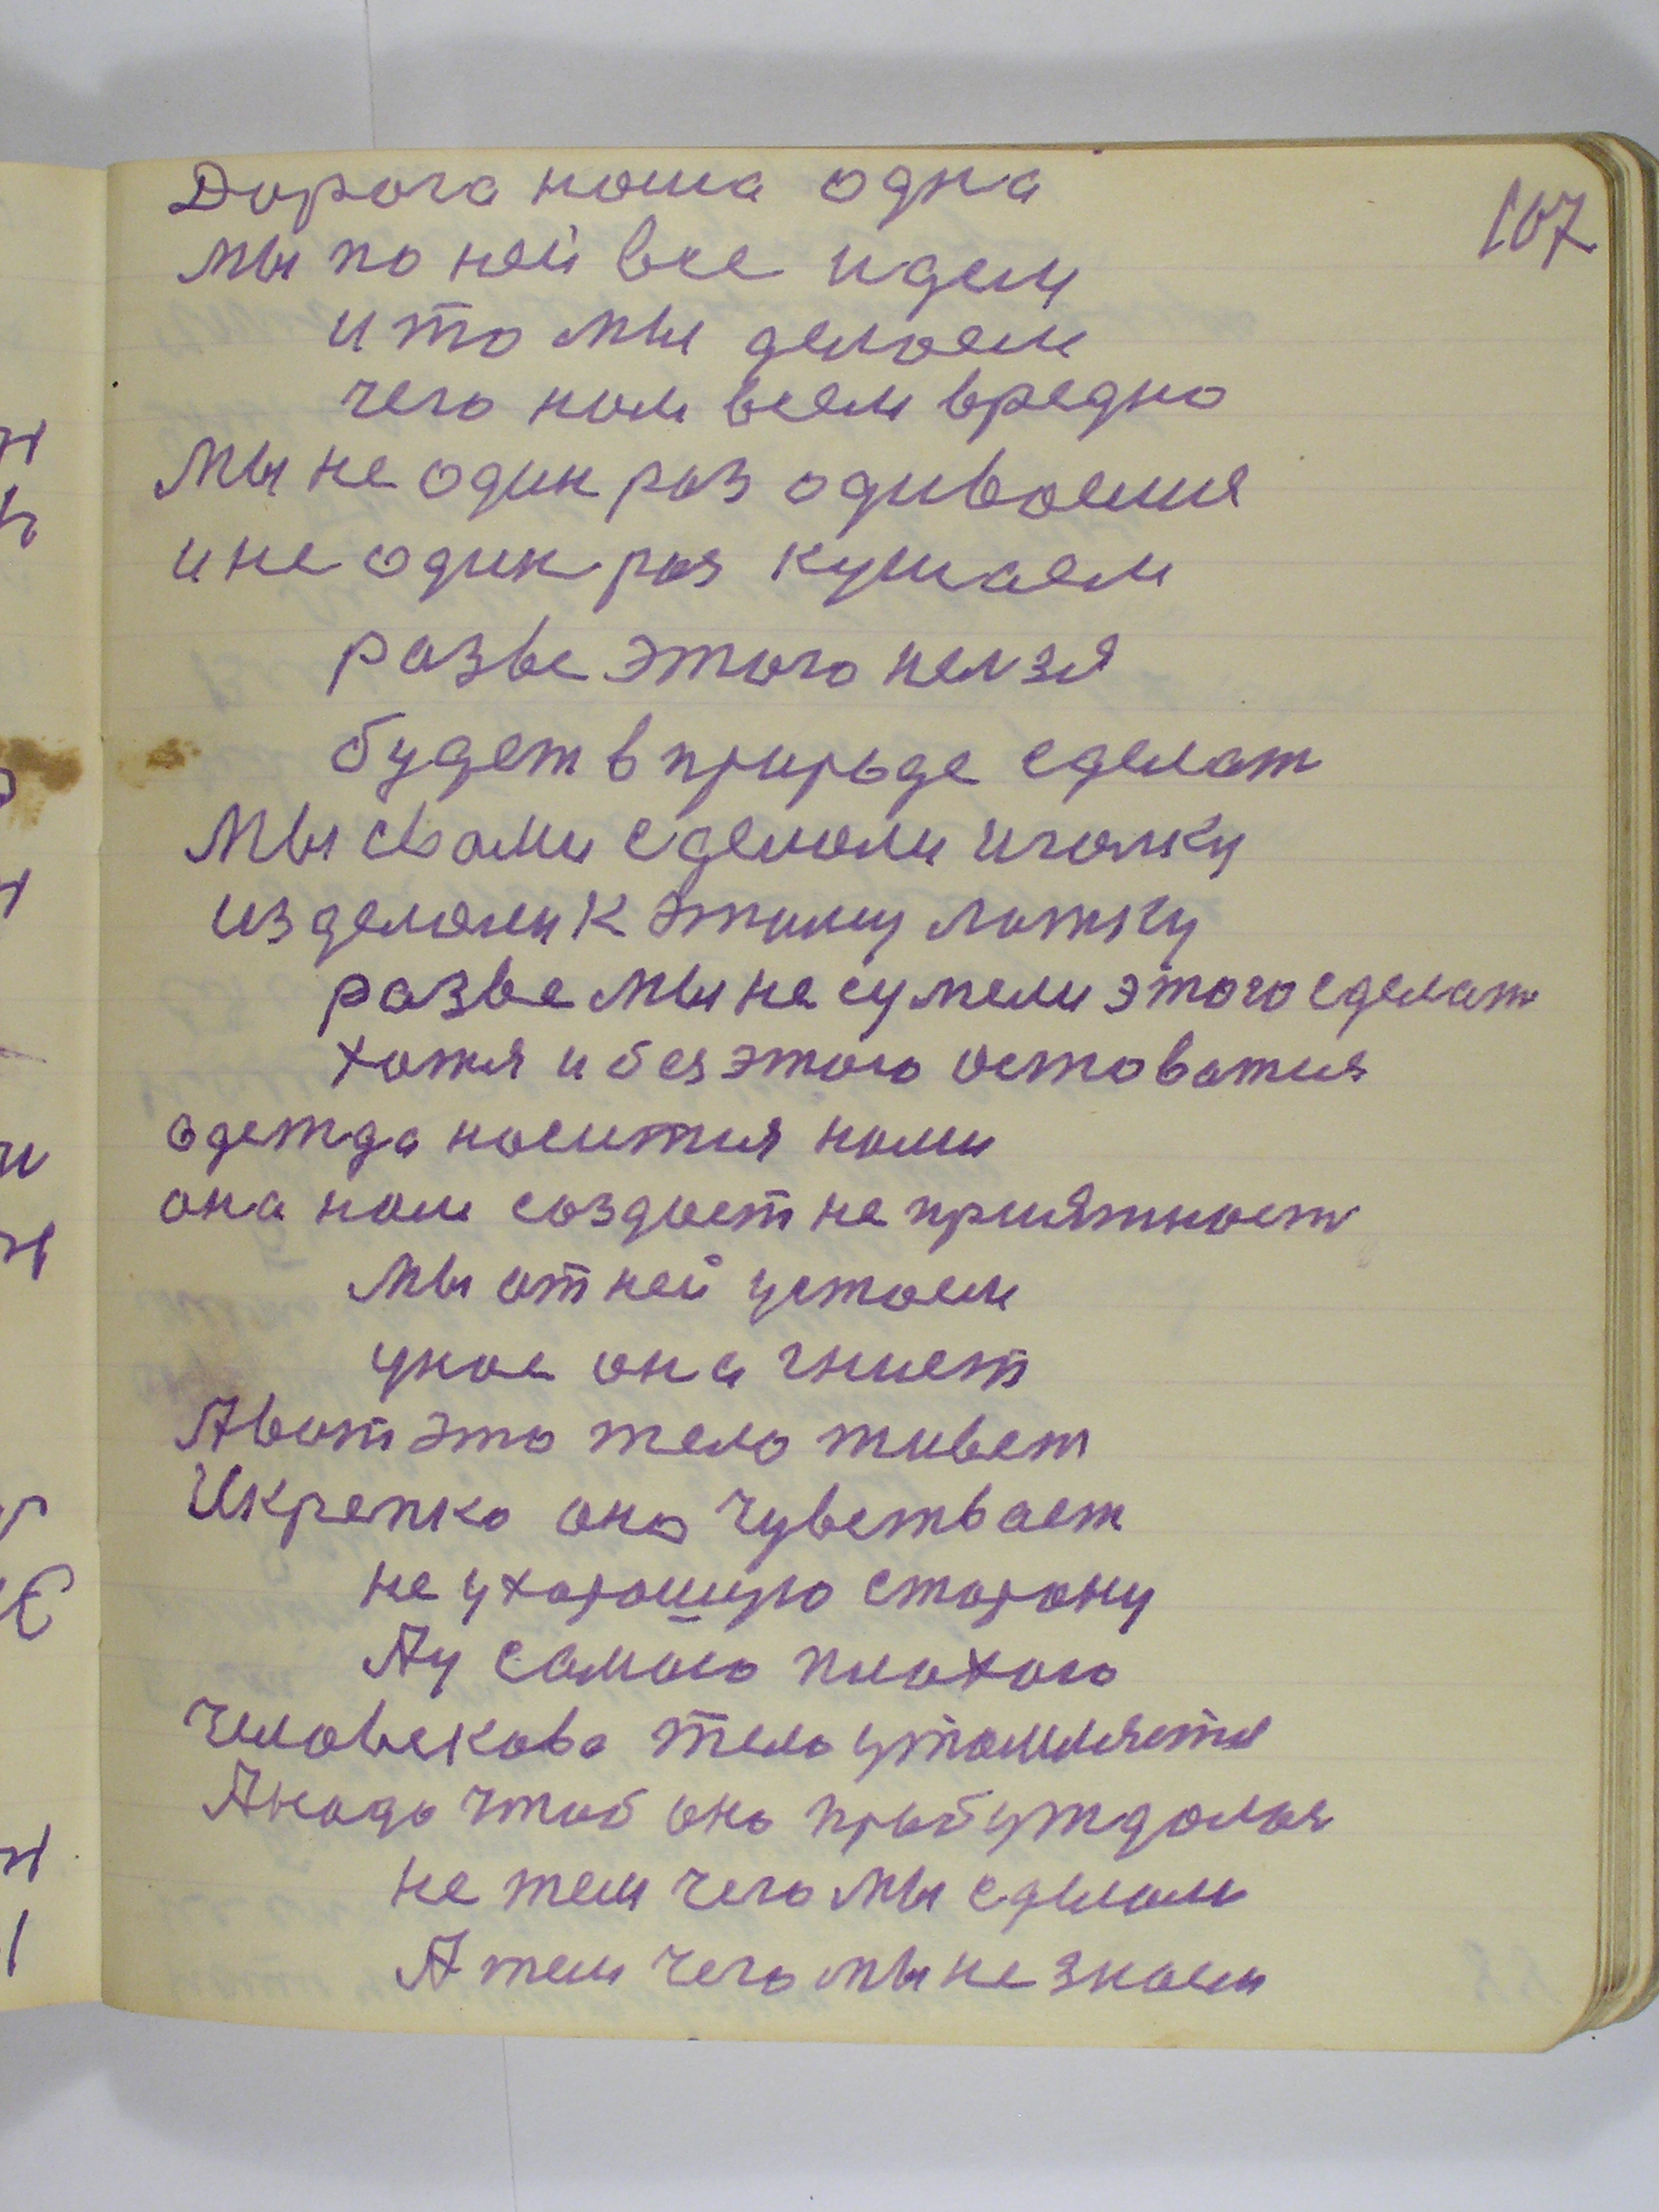 107
Дорога наша одна
мы по ней все идем
и то мы делаем
чего нам всем вредно
Мы не один раз одиваемся
и не один раз кушаем
разве этого нелзя
будет в природе сделат
Мы свами сделали иголку
изделали к этому латку
разве мы не сумели этого сделат
хотя и без этого оставатся
одежда носится нами
она нам создает не приятност
мы от ней устаем
у нас она гниет
А вот это тело живет
И крепко оно чувствает
не у хорошую сторону
А у самого плохого
человекова тело утомляется
А надо чтоб оно пробуждалос
не тем чего мы сделали
А тем чего мы не знаем